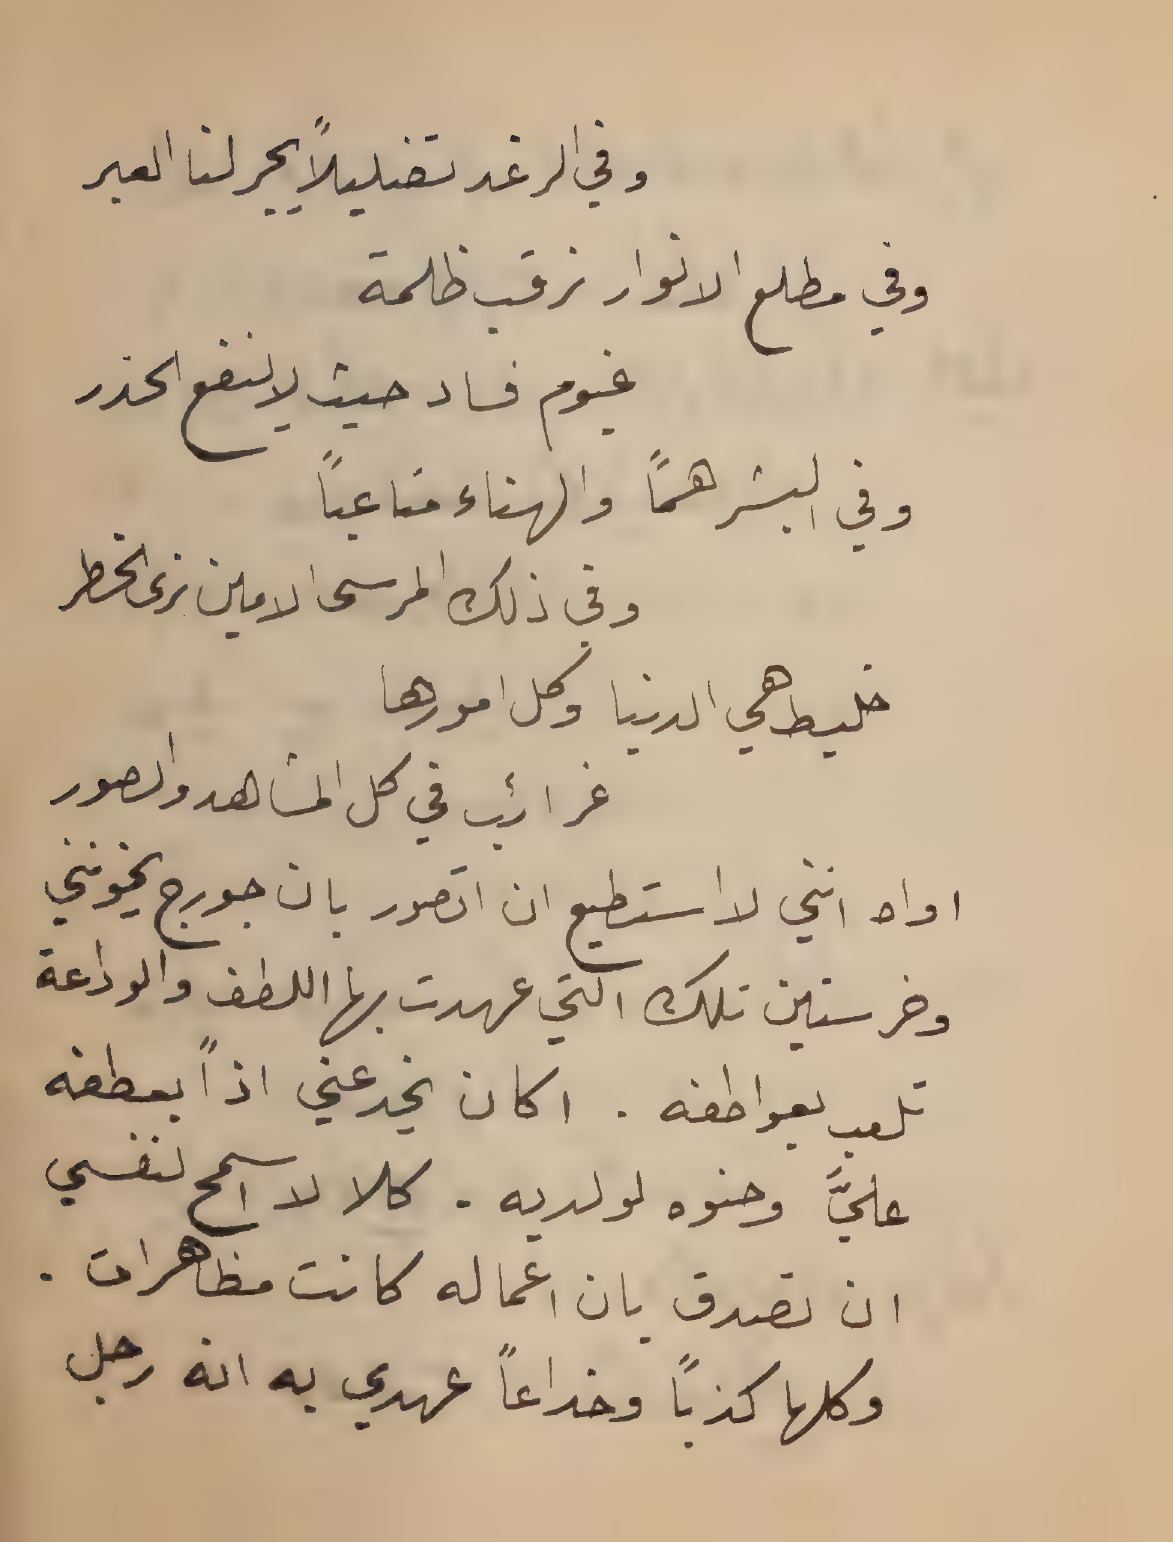 وفي الرغد تضليلاً يجر لنا العبر
وفي مطلع الانوار نرقب ظلمة
غيوم فساد حيث لا ينفع الحذر
وفي البشر همّاً والهناء متاعباً
وفي ذلك المرسى الامين نرى الخطر
خليط هي الدنيا وكل امورها
غرائب في كل المشاهد والصور
اواه انني لا استطيع ان اتصور بان جورج يخونني
وخرستين تلك التي عهدت بها اللطف والوداعة
تلعب بعواطفه . اكان يخدعني اذاً بعطفه
عليَّ وحنوه لولديه . كلا لا اسمح لنفسي
ان تصدق بان اعماله كانت مظاهرات .
وكلها كذباً وخداعاً عهدي به انه رجل